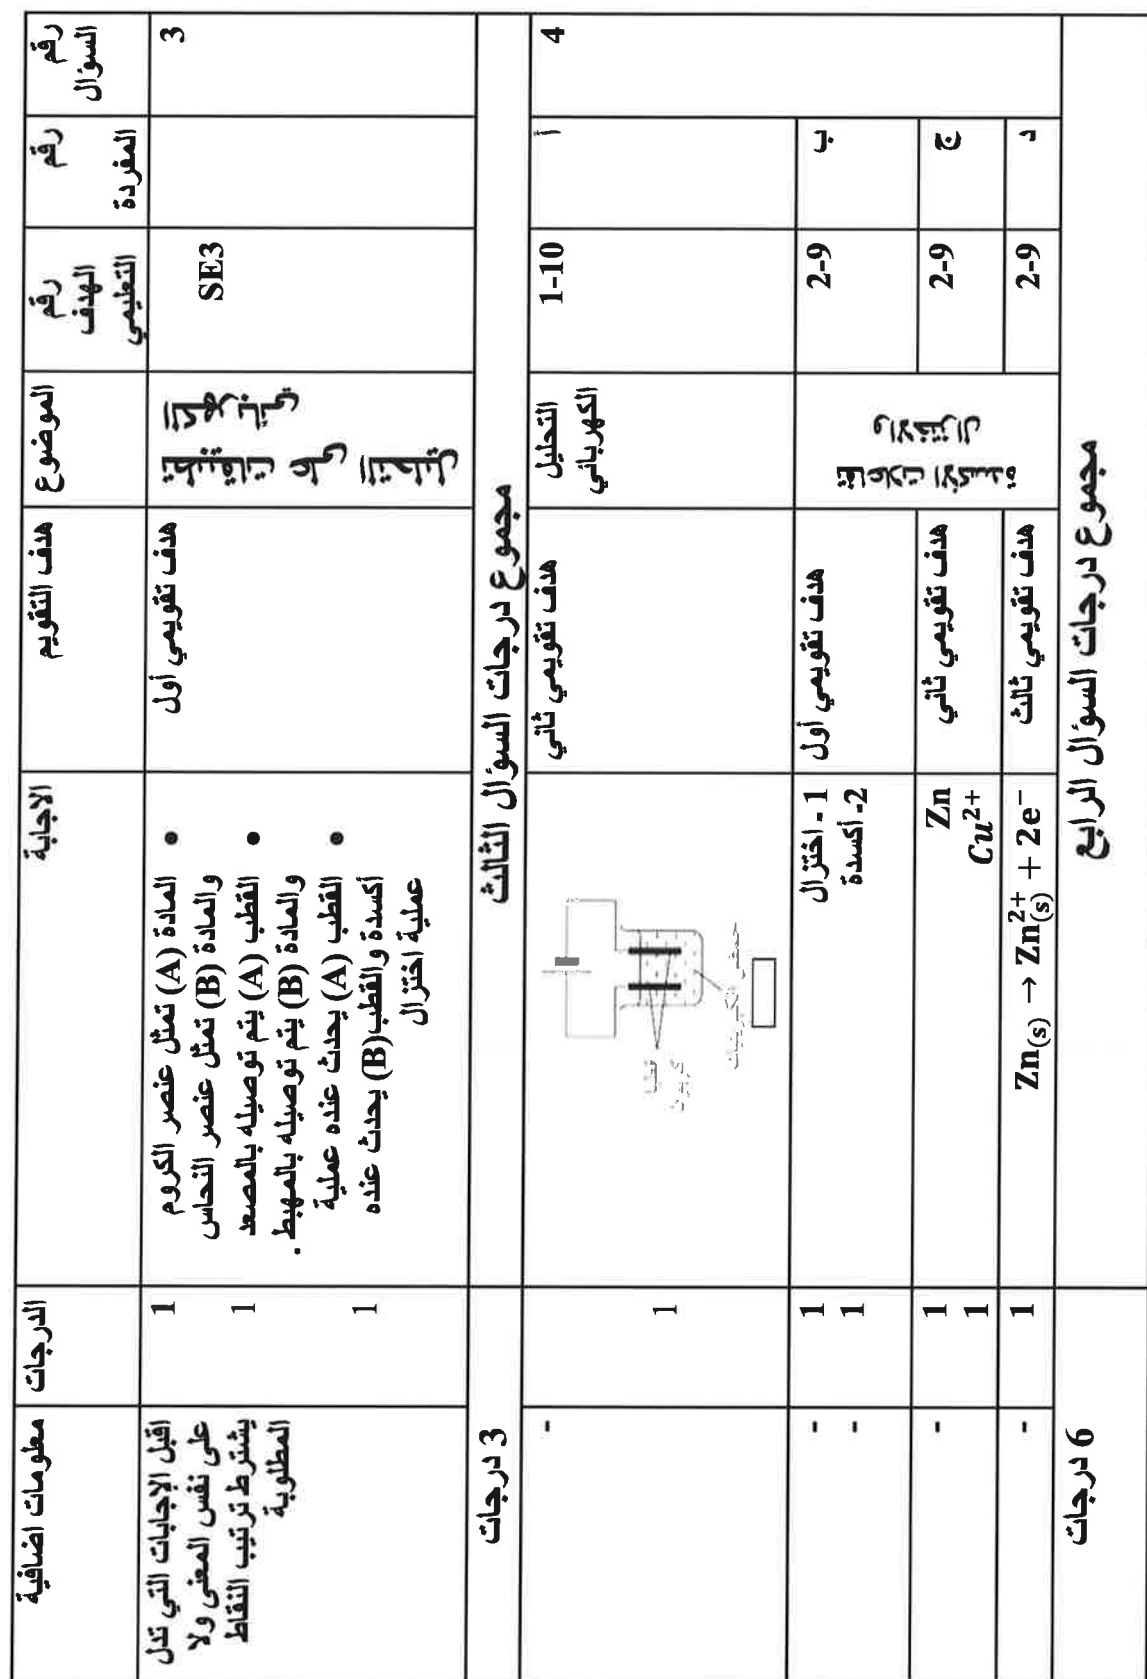 رقم السؤال
رقم المفردة
رقم الهدف التعليمي
الموضوع
هدف التقويم
الاجابة
الدرجات
معلومات اضافية
3
SE3
تطبيقات على التحليل
الكهربائي
هدف تقويمي أول
• المادة (A) تمثل عنصر الكروم
والمادة (B) تمثل عنصر النحاس
• القطب (A) يتم توصيله بالمصعد
والمادة (B) يتم توصيله بالمهبط .
• القطب (A) يحدث عنده عملية
أكسدة والقطب(B) يحدث عنده
عملية اختزال
1
1
1
اقبل الإجابات التي تدل
على نفس المعنى ولا
يشترط ترتيب النقاط
المطلوبة
مجموع درجات السؤال الثالث
3 درجات
4
أ
1-10
التحليل
الكهربائي
هدف تقويمي ثاني
1
-
ب
2-9
تفاعلات الأكسدة
والاختزال
هدف تقويمي أول
1 - اختزال
2- أكسدة
1
1
-
-
ج
2-9
هدف تقويمي ثاني
Zn
Cu²⁺
1
1
-
د
2-9
هدف تقويمي ثالث
Zn₍s₎ → Zn²⁺₍s₎ + 2e⁻
1
-
مجموع درجات السؤال الرابع
6 درجات